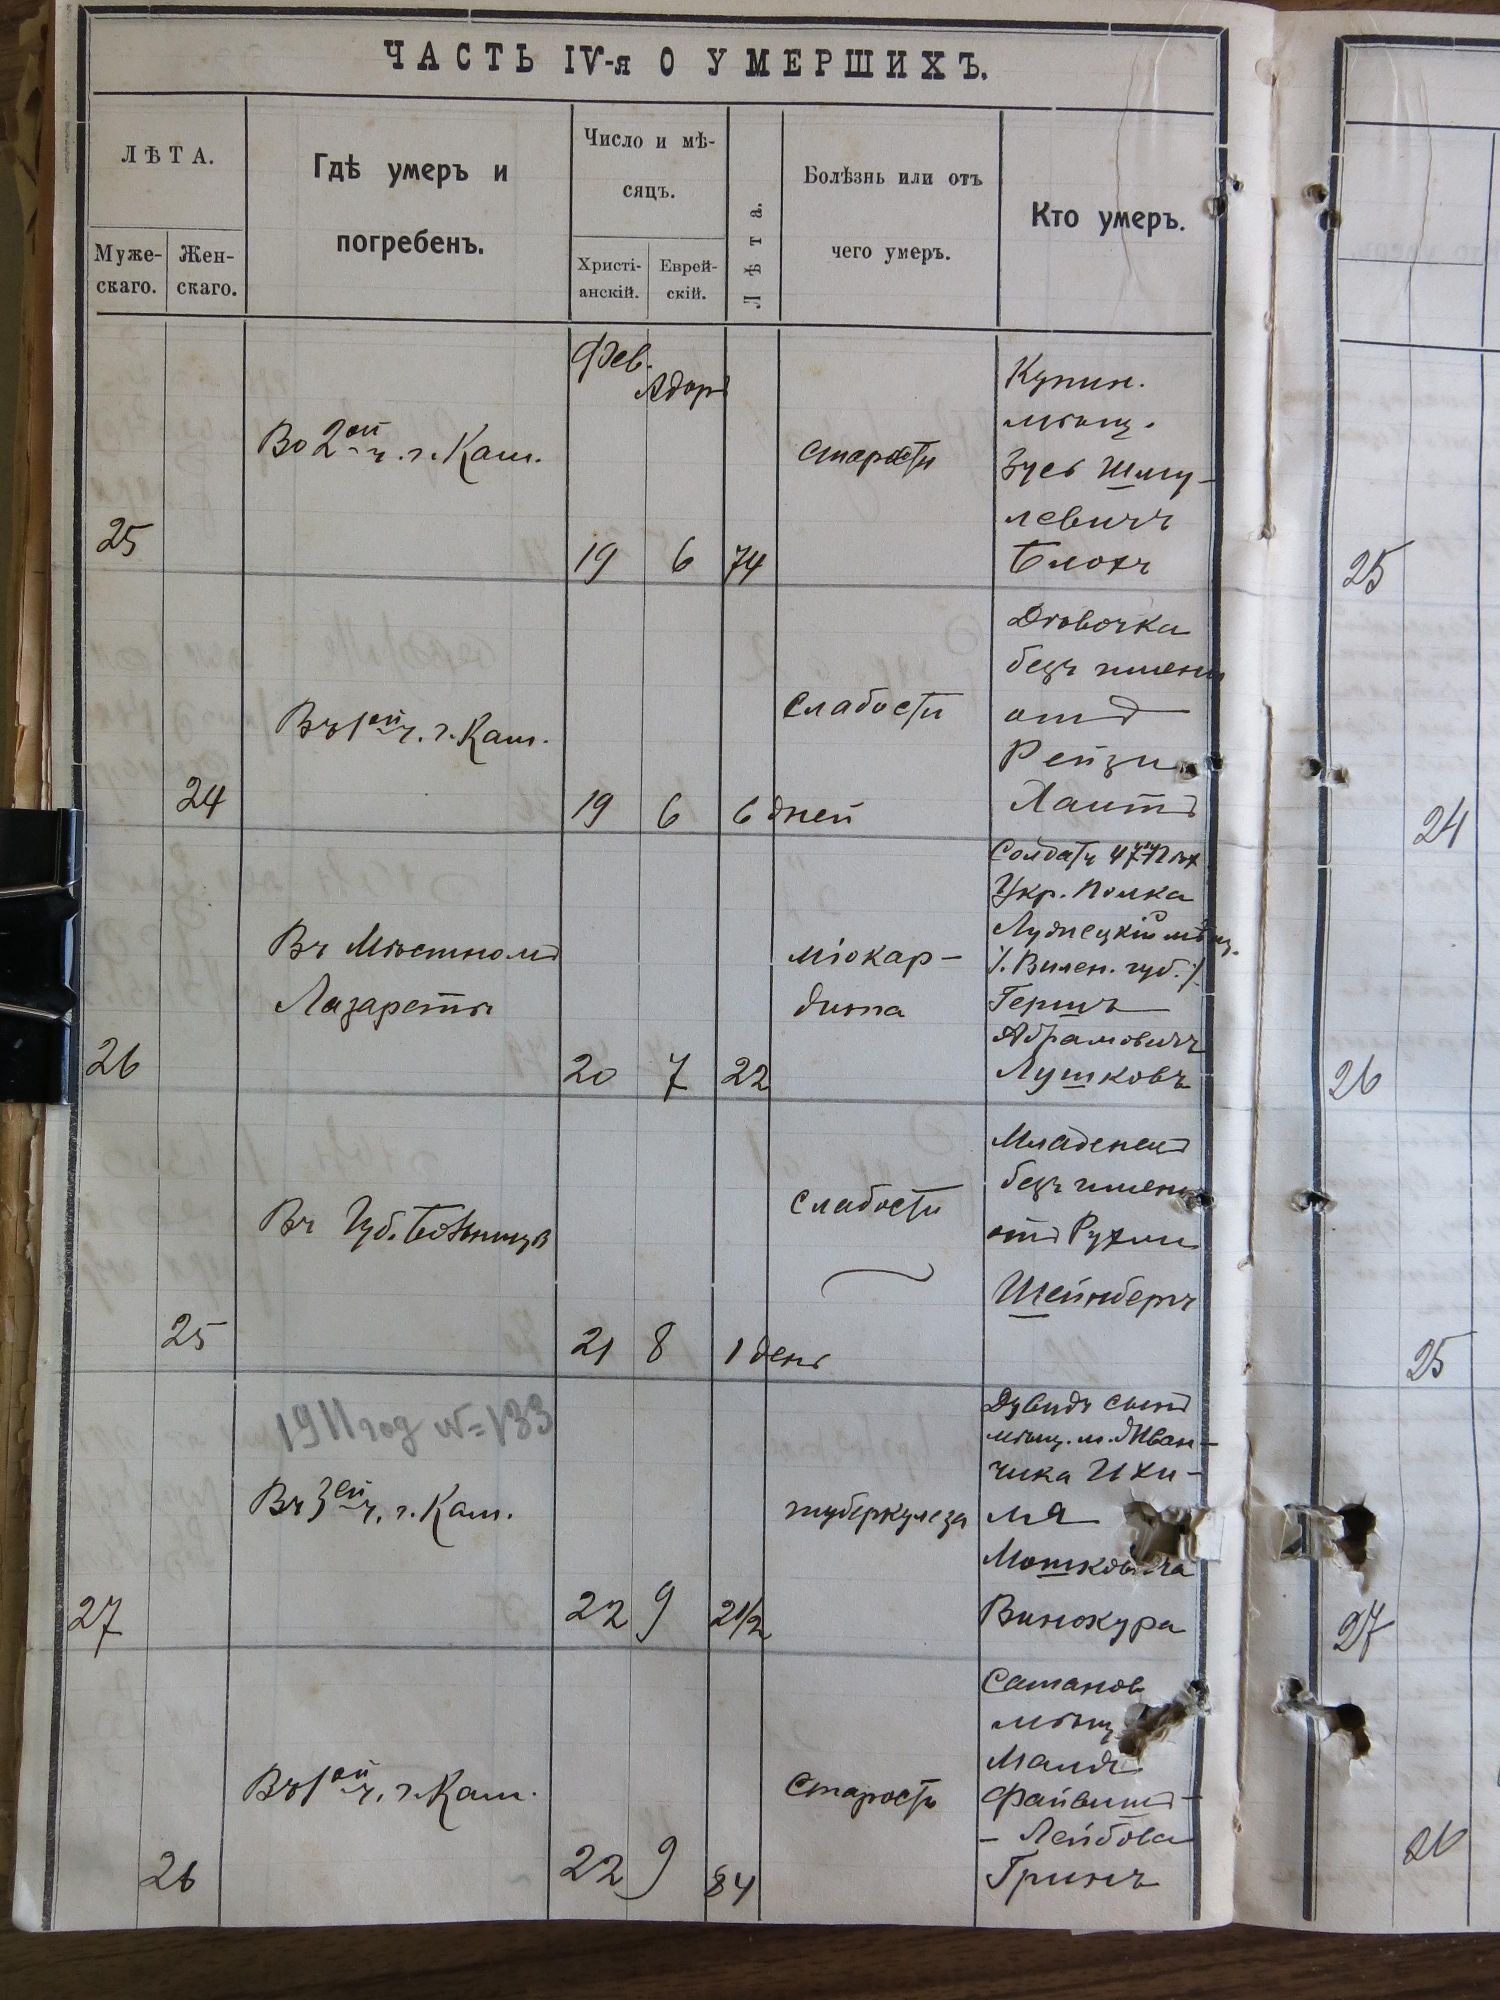 ЧАСТЬ IV-я О УМЕРШИХЪ.
ЛѢТА.
Муже-
скаго.
Жен-
скаго.
Гдѣ умеръ и
погребенъ.
Число и мѣ-
сяцъ.
Христі-
анскій.
Еврей-
скій.
Лѣта.
Болѣзнь или отъ
чего умеръ.
Кто умеръ.
Фев.
Адаръ
25
Во 2ой ч. г. Кам.
19
6
74
старости
Купин.
мѣщ.
Зусь Шму-
левичъ
Блохъ
25
24
Въ 1ой ч. г. Кам.
19
6
6 дней
слабости
Дѣвочка
безъ имени
отъ
Рейзи
Хаитъ
24
26
Въ Мѣстномъ
Лазаретѣ
20
7
22
міокар-
дита
Солдатъ
Укр. Полка
/. Вилен. губ. /.
Гершъ
Абрамовичъ
Лушковъ
26
25
Въ Губ. Больницѣ
21
8
1 день
слабости
Младенец
безъ имени
отъ Рухли
Шейнбергъ
25
1911 год № 133
27
Въ 3ей ч. г. Кам.
22
9
2 1/2
туберкулеза
Дувидъ сынъ
мѣщ. м. Жван-
чика Ихи-
ля
Мошковича
Винокура
27
26
Въ 1ой ч. г. Кам.
22
9
84
старость
Сатанов
мѣщ
Файвиш-
- Лейбова
Гринъ
26